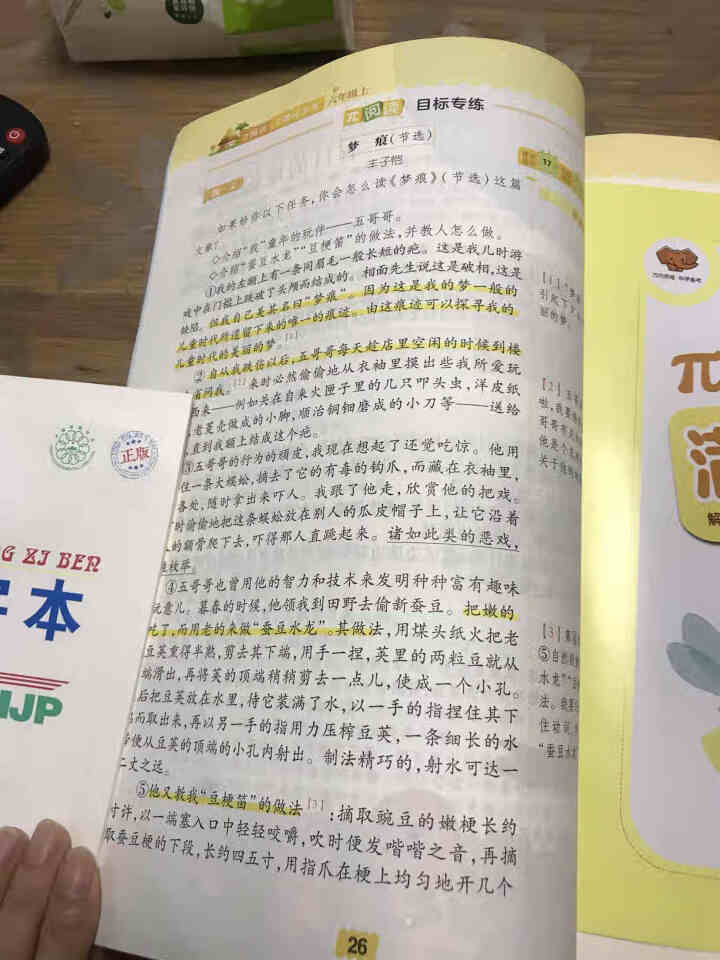 六年级上
阅读 目标专练
梦 痕(节选)
王子恺
如果给你以下任务,你会怎么读《梦痕》(节选)这篇
文章?
◇介绍“我”童年的玩伴——五哥哥。
◇介绍“蚕豆水龙”“豆梗笛”的做法,并教人怎么做。
①我的左额上有一条同眉毛一般长短的疤。这是我儿时游
戏中在门槛上跌破了头颅而结成的。相面先生说这是破相,这是
缺陷。但我自己美其名曰“梦痕”。因为这是我的梦一般的
儿童时代所遗留下来的唯一的痕迹。由这痕迹可以探寻我的
儿童时代的美丽的梦。[1]
②自从我跌伤以后,五哥哥每天趁店里空闲的时候到楼
省问我。[2]来时必然偷偷地从衣袖里摸出些我所爱玩
而来——例如关在自来火匣子里的几只叩头虫,洋皮纸
老菱壳做成的小脚,顺治铜钿磨成的小刀等——送给
直到我额上结成这个疤。
③五哥哥的行为的顽皮,我现在想起了还觉吃惊。他用
住一条大蜈蚣,摘去了它的有毒的钩爪,而藏在衣袖里,
各处,随时拿出来吓人。我跟了他走,欣赏他的把戏。
时偷偷地把这条蜈蚣放在别人的瓜皮帽子上,让它沿着
的额骨爬下去,吓得那人直跳起来。诸如此类的恶戏,
枚举。
④五哥哥也曾用他的智力和技术来发明种种富有趣味
玩意儿。暮春的时候,他领我到田野去偷新蚕豆。把嫩的
吃了,而用老的来做“蚕豆水龙”。其做法,用煤头纸火把老
豆荚熏得半熟,剪去其下端,用手一捏,荚里的两粒豆就从
端滑出,再将荚的顶端稍稍剪去一点儿,使成一个小孔。
后把豆荚放在水里,待它装满了水,以一手的指捏住其下
而取出来,再以另一手的指用力压榨豆荚,一条细长的水
便从豆荚的顶端的小孔内射出。制法精巧的,射水可达一
二丈之远。
⑤他又教我“豆梗笛”的做法[3]:摘取豌豆的嫩梗长约
寸许,以一端塞入口中轻轻咬嚼,吹时便发喈喈之音,再摘
取蚕豆梗的下段,长约四五寸,用指爪在梗上均匀地开几个
26
17
[1]
引起下
丽的梦。
[2]
哥哥
他是
关于
[3]
⑤自然段
水龙”
法。
住动词,
“蚕豆水
正版
G ZJ BEN
字本
NJP
π
解